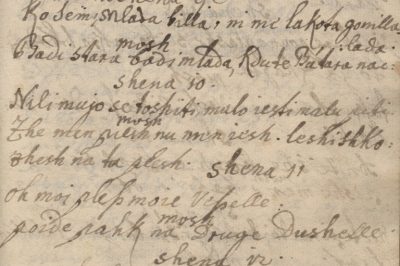 Ko sem mlada billa, ni mi lakota gonilla
Badi stara badi mlada, K dute Batara nac: :lada.
mosh
shena 10.
Nili mujo se toshiti malo iesti malu piti
mosh
Zhe men nesh nu men resh. leshishko:
shesh na ta plesh. shena 11
oh moi ples more Vesselle.
mosh
poide pahk na Druge Dushelle.
shena 12